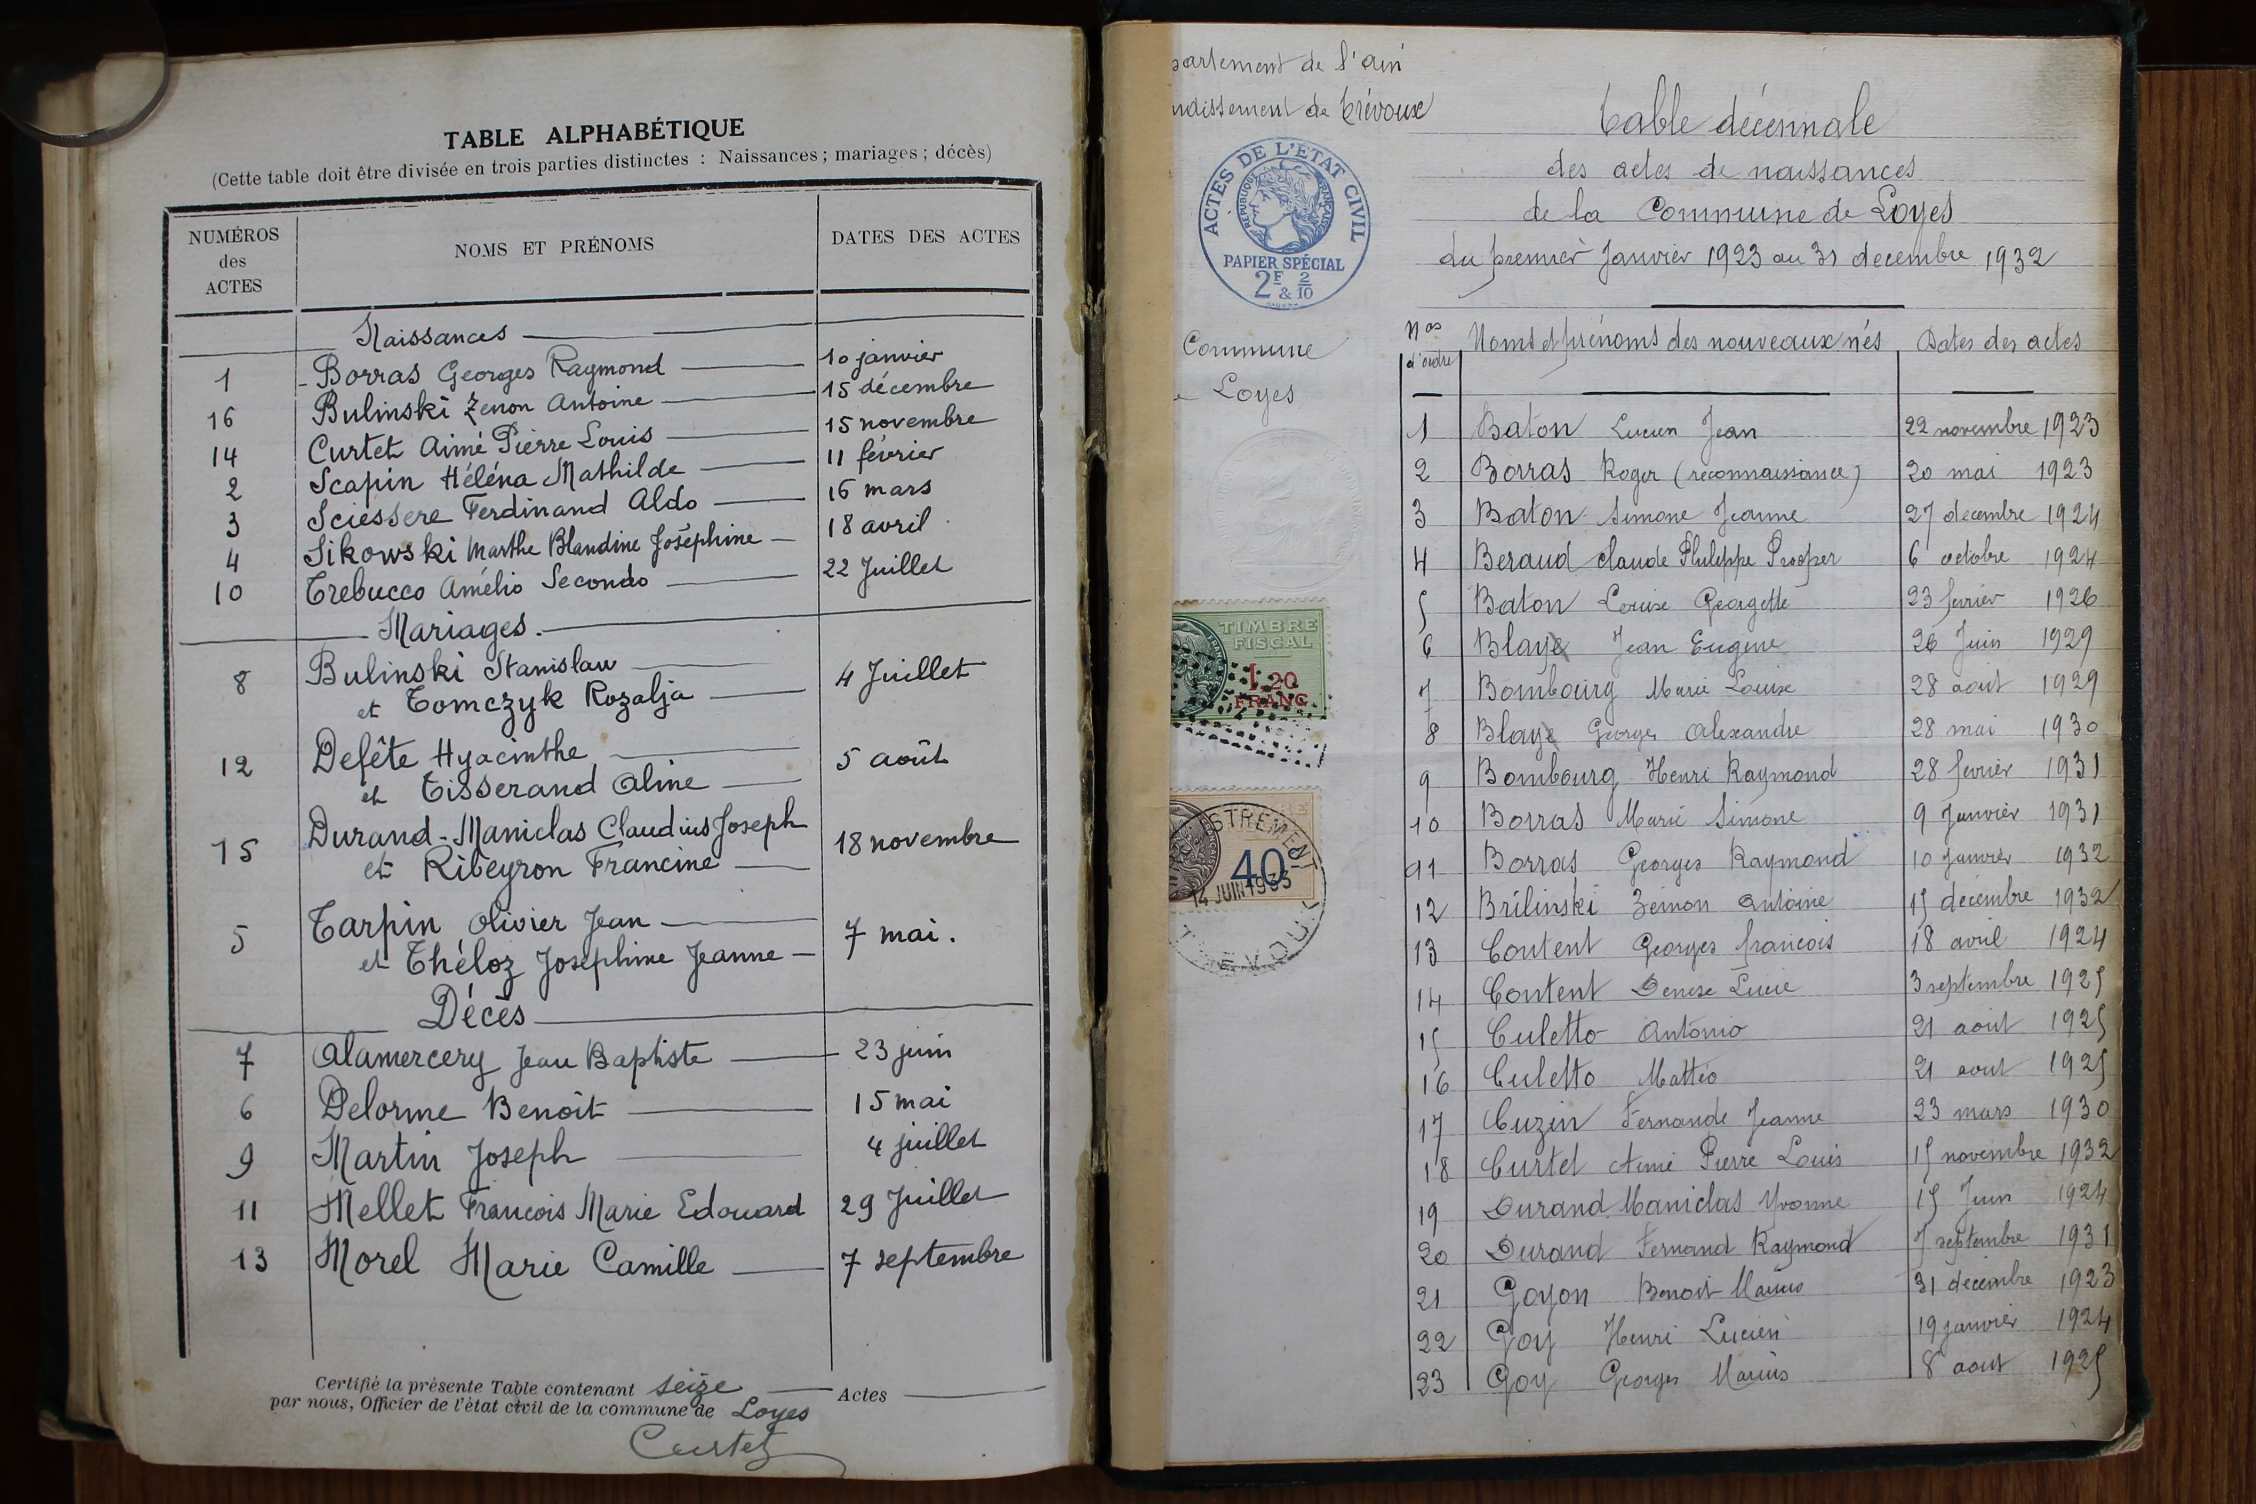 TABLE ALPHABÉTIQUE
(Cette table doit être divisée en trois parties distinctes : Naissances ; mariages ; décès)
NUMÉROS des ACTES NOMS ET PRÉNOMS DATES DES ACTES
Naissances
1 Borras Georges Raymond 10 janvier
16 Bulinski Zenon Antoine 15 décembre
14 Curtet Aimé Pierre Louis 15 novembre
2 Scapin Héléna Mathilde 11 février
3 Sciessere Ferdinand Aldo 16 mars
4 Sikowski Marthe Blandine Joséphine 18 avril
10 Trebucco Amélio Secondo 22 Juillet
Mariages
8 Bulinski Stanislaw
et Tomczyk Rozalja 4 Juillet
12 Defête Hyacinthe
et Tisserand Aline 5 août
15 Durand-Maniclas Claudius Joseph
et Ribeyron Francine 18 novembre
5 Tarpin Olivier Jean
et Théloz Joséphine Jeanne 7 mai.
Décès
7 Alamercery Jean Baptiste 23 juin
6 Delorme Benoît 15 mai
9 Martin Joseph 4 juillet
11 Mellet François Marie Edouard 29 Juillet
13 Morel Marie Camille 7 septembre
Certifié la présente Table contenant seize Actes
par nous, Officier de l'état civil de la commune de Loyes
Curtet
partement de l'ain
ndissement de Trévoux
ACTES DE L'ETAT CIVIL
REPUBLIQUE FRANÇAISE
PAPIER SPÉCIAL
2F & 2/10
Commune
e Loyes
TIMBRE
FISCAL
1,20
FRANC
STREMENT
40
14 JUIN 1933
TREVOUX
Table décennale
des actes de naissances
de la Commune de Loyes
du premier Janvier 1923 au 31 decembre 1932
Nos d'ordre Noms et prénoms des nouveaux nés Dates des actes
1 Baton Lucien Jean 22 novembre 1923
2 Borras Roger (reconnaissance) 20 mai 1923
3 Baton Simone Jeanne 27 decembre 1924
4 Beraud Claude Philippe Prosper 6 octobre 1924
5 Baton Louise Georgette 23 fevrier 1926
6 Blaye Jean Eugene 26 Juin 1929
7 Bombourg Marie Louise 28 aout 1929
8 Blaye Georges Alexandre 28 mai 1930
9 Bombourg Henri Raymond 28 fevrier 1931
10 Borras Marie Simone 9 Janvier 1931
11 Borras Georges Raymond 10 Janvier 1932
12 Brilinski Zeinon Antoine 15 décembre 1932
13 Content Georges françois 18 avril 1924
14 Content Denise Lucie 3 septembre 1925
15 Culetto Antonio 21 aout 1925
16 Culetto Mattéo 21 aout 1925
17 Cuzin Fernande Jeanne 23 mars 1930
18 Curtet Aimé Pierre Louis 15 novembre 1932
19 Durand Maniclas Yvonne 15 Juin 1924
20 Durand Fernand Raymond 7 septembre 1931
21 Goyon Benoit Marius 31 décembre 1923
22 Goy Henri Lucien 19 janvier 1924
23 Goy Georges Marius 8 aout 1925